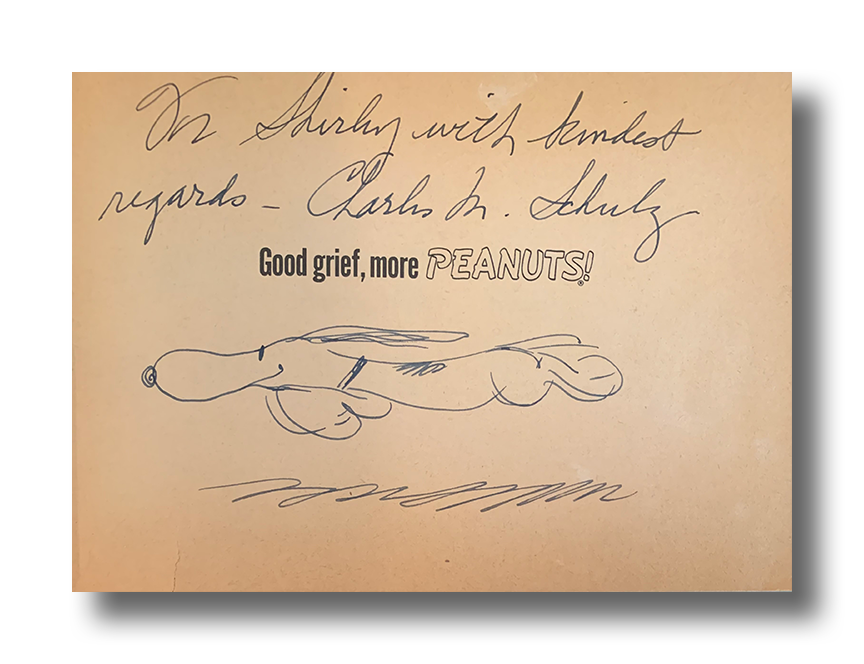 For Shirley with kindest
regards – Charles M. Schulz
Good grief, more PEANUTS!®